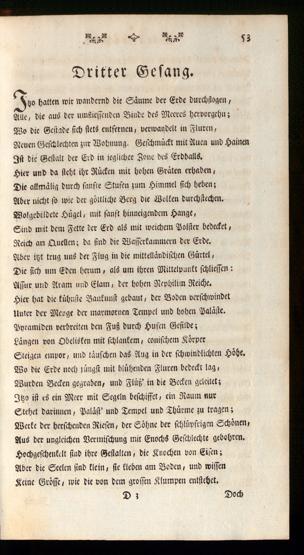 53
Dritter Gesang.
Itzo hatten wir wandernd die Säume der Erde durchflogen,
Alle, die aus der umfliessenden Binde des Meeres hervorgehn;
Wo die Gestade sich stets entfernen, verwandelt in Fluren,
Neuen Geschlechten zur Wohnung. Geschmückt mit Auen und Hainen
Ist die Gestalt der Erd in jeglicher Zone des Erdballs.
Hier und da steht ihr Rücken mit hohen Gräten erhaben,
Die allmälig durch sanfte Stufen zum Himmel sich heben;
Aber nicht so wie der göttliche Berg die Wolken durchstechen.
Wolgebildete Hügel, mit sanft hinneigendem Hange,
Sind mit dem Fette der Erd als mit weichem Polster bedecket,
Reich an Quellen; da sind die Wasserkammern der Erde.
Aber itzt trug uns der Flug in die mittelländischen Gürtel,
Die sich um Eden herum, als um ihren Mittelpunkt schliessen:
Assur und Aram und Elam, der hohen Nephilim Reiche.
Hier hat die kühnste Baukunst gebaut, der Boden verschwindet
Unter der Menge der marmornen Tempel und hohen Paläste.
Pyramiden verbreiten den Fuß durch Hufen Gefilde;
Längen von Obelisken mit schlankem, conischem Körper
Steigen empor, und täuschen das Aug in der schwindlichten Höhe.
Wo die Erde noch jüngst mit blühenden Fluren bedeckt lag,
Wurden Becken gegraben, und Flüss' in die Becken geleitet;
Itzo ist es ein Meer mit Segeln beschiffet, ein Raum nur
Stehet darinnen, Paläst' und Tempel und Thürme zu tragen;
Werke der herschenden Riesen, der Söhne der schlüpfrigen Schönen,
Aus der ungleichen Vermischung mit Enochs Geschlechte gebohren.
Hochgeschenkelt sind ihre Gestalten, die Knochen von Eisen;
Aber die Seelen sind klein, sie kleben am Boden, und wissen
Keine Grösse, wie die von dem grossen Klumpen entstehet.
D 3 Doch